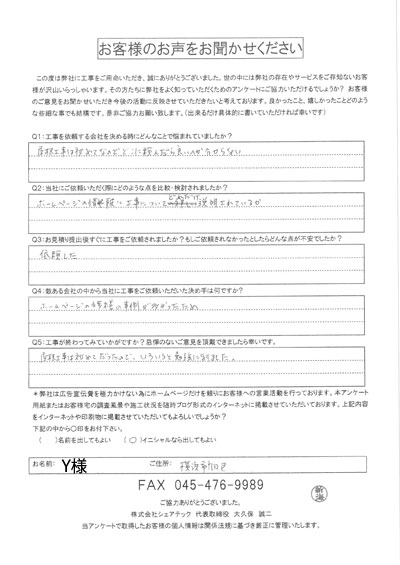 お客様のお声をお聞かせください
この度は弊社に工事をご用命いただき、誠にありがとうございました。世の中には弊社の存在やサービスをご存知ないお客
様が沢山いらっしゃいます。その方たちに弊社をよく知っていただくためのアンケートにご協力いただけるでしょうか? お客様
のご意見をお聞かせいただき今後の活動に反映させていただきたいと考えております。良かったこと、嬉しかったことどのよう
な些細な事でも結構です。是非ご協力お願い致します。(出来るだけ具体的に書いていただければ幸いです)
Q1:工事を依頼する会社を決める時にどんなことで悩まれていましたか?
屋根工事は初めてなのでどこに頼んだら良いか分からない
Q2:当社にご依頼いただく際にどのような点を比較・検討されましたか?
ホームページの情報 工事について 説明されているか
Q3:お見積り提出後すぐに工事をご依頼されましたか?もしご依頼されなかったとしたらどんな点が不安でしたか?
依頼した
Q4:数ある会社の中から当社に工事をご依頼いただいた決め手は何ですか?
ホームページの 事例が 多かったため
Q5:工事が終わってみていかがですか?忌憚のないご意見を頂戴できましたら幸いです。
屋根工事は初めてだったので、いろいろと勉強になりました。
*弊社は広告宣伝費を極力かけない為にホームページだけを頼りにお客様への営業活動を行っております。本アンケート
用紙またはお客様宅の調査風景や施工状況を随時ブログ形式のインターネットに掲載させていただいております。上記内容
をインターネットや印刷物に掲載させていただいてもよろしいでしょうか?
下記の中から〇印をお付け下さい。
( )名前を出してもよい (〇)イニシャルなら出してもよい
お名前: Y様 ご住所: 横浜市旭区
FAX 045-476-9989
ご協力ありがとうございました。
株式会社シェアテック 代表取締役 大久保 誠二
当アンケートで取得したお客様の個人情報は関係法規に基づき厳正に管理いたします。